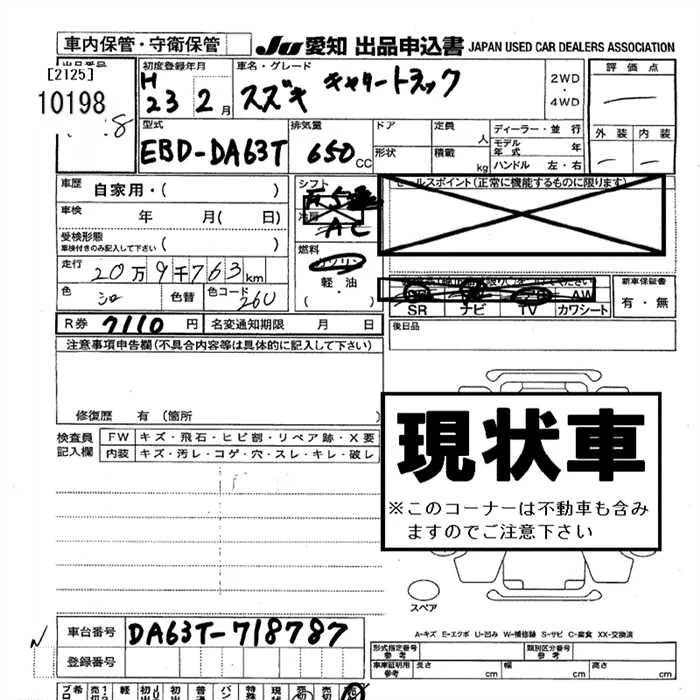 車内保管・守衛保管
JU 愛知 出品申込書 JAPAN USED CAR DEALERS ASSOCIATION
出品番号
[2125]
10198
初度登録年月
H
23 2 月
車名・グレード
スズキ キャリートラック
2WD
・
4WD
評価点
外装 内装
型式
EBD-DA63T
排気量
650 CC
ドア
形状
定員 人
積載 kg
ディーラー・並行
モデル年式 年
ハンドル 左・右
車歴 自家用・( )
車検 年 月( 日)
受検形態
車検付きのみ記入して下さい ( )
走行 20万9千763km
色 シロ 色替 色コード 26U
シフト
F5
冷房
AC
燃料
ガソリン
軽・油
・( )
セールスポイント(正常に機能するものに限ります)
AW
SR ナビ TV カワシート
新車保証書
有・無
R券 7110 円 名変通知期限 月 日
後日品
注意事項申告欄(不具合内容等は具体的に記入して下さい)
修復歴 有(箇所 )
検査員
記入欄
FW キズ・飛石・ヒビ割・リペア跡・X要
内装 キズ・汚レ・コゲ・穴・スレ・キレ・破レ
現状車
※このコーナーは不動車も含み
ますのでご注意下さい
スペア
A-キズ E-エクボ U-凹み W-補修跡 S-サビ C-腐食 XX-交換済
N
車台番号 DA63T-718787
登録番号
形式指定番号
参考
類別区分番号
参考
車庫証明用
参考
長さ cm 幅 cm 高さ cm